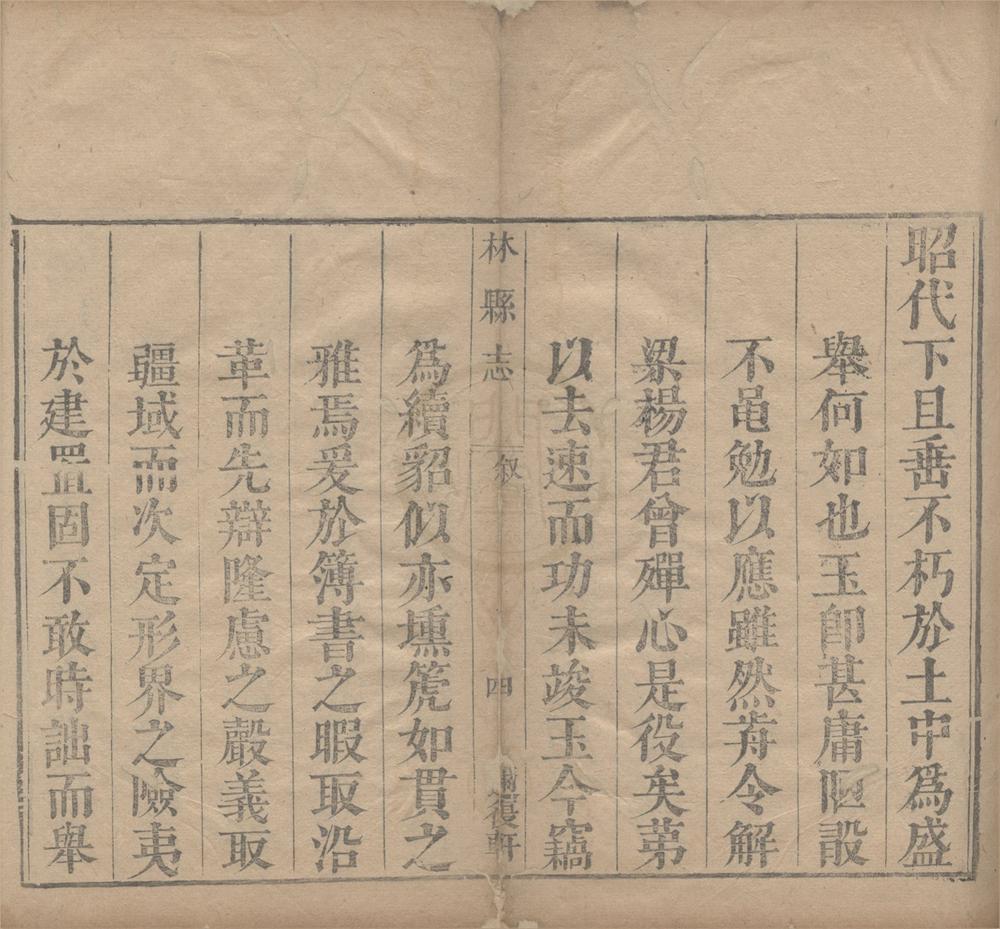 昭代下且垂不朽於土中為盛
舉何如也玉卽甚庸陋設
不黾勉以應雖然前令解
梁楊君曾殫心是役矣第
以去速而功未竣玉今竊
為續貂似亦壎篪如貫之
林縣志 叙 四 覆軒
雅焉爰於簿書之暇取沿
革而先辯隆慮之嚴義取
疆域而次定形界之險夷
於建置固不敢時詘而舉